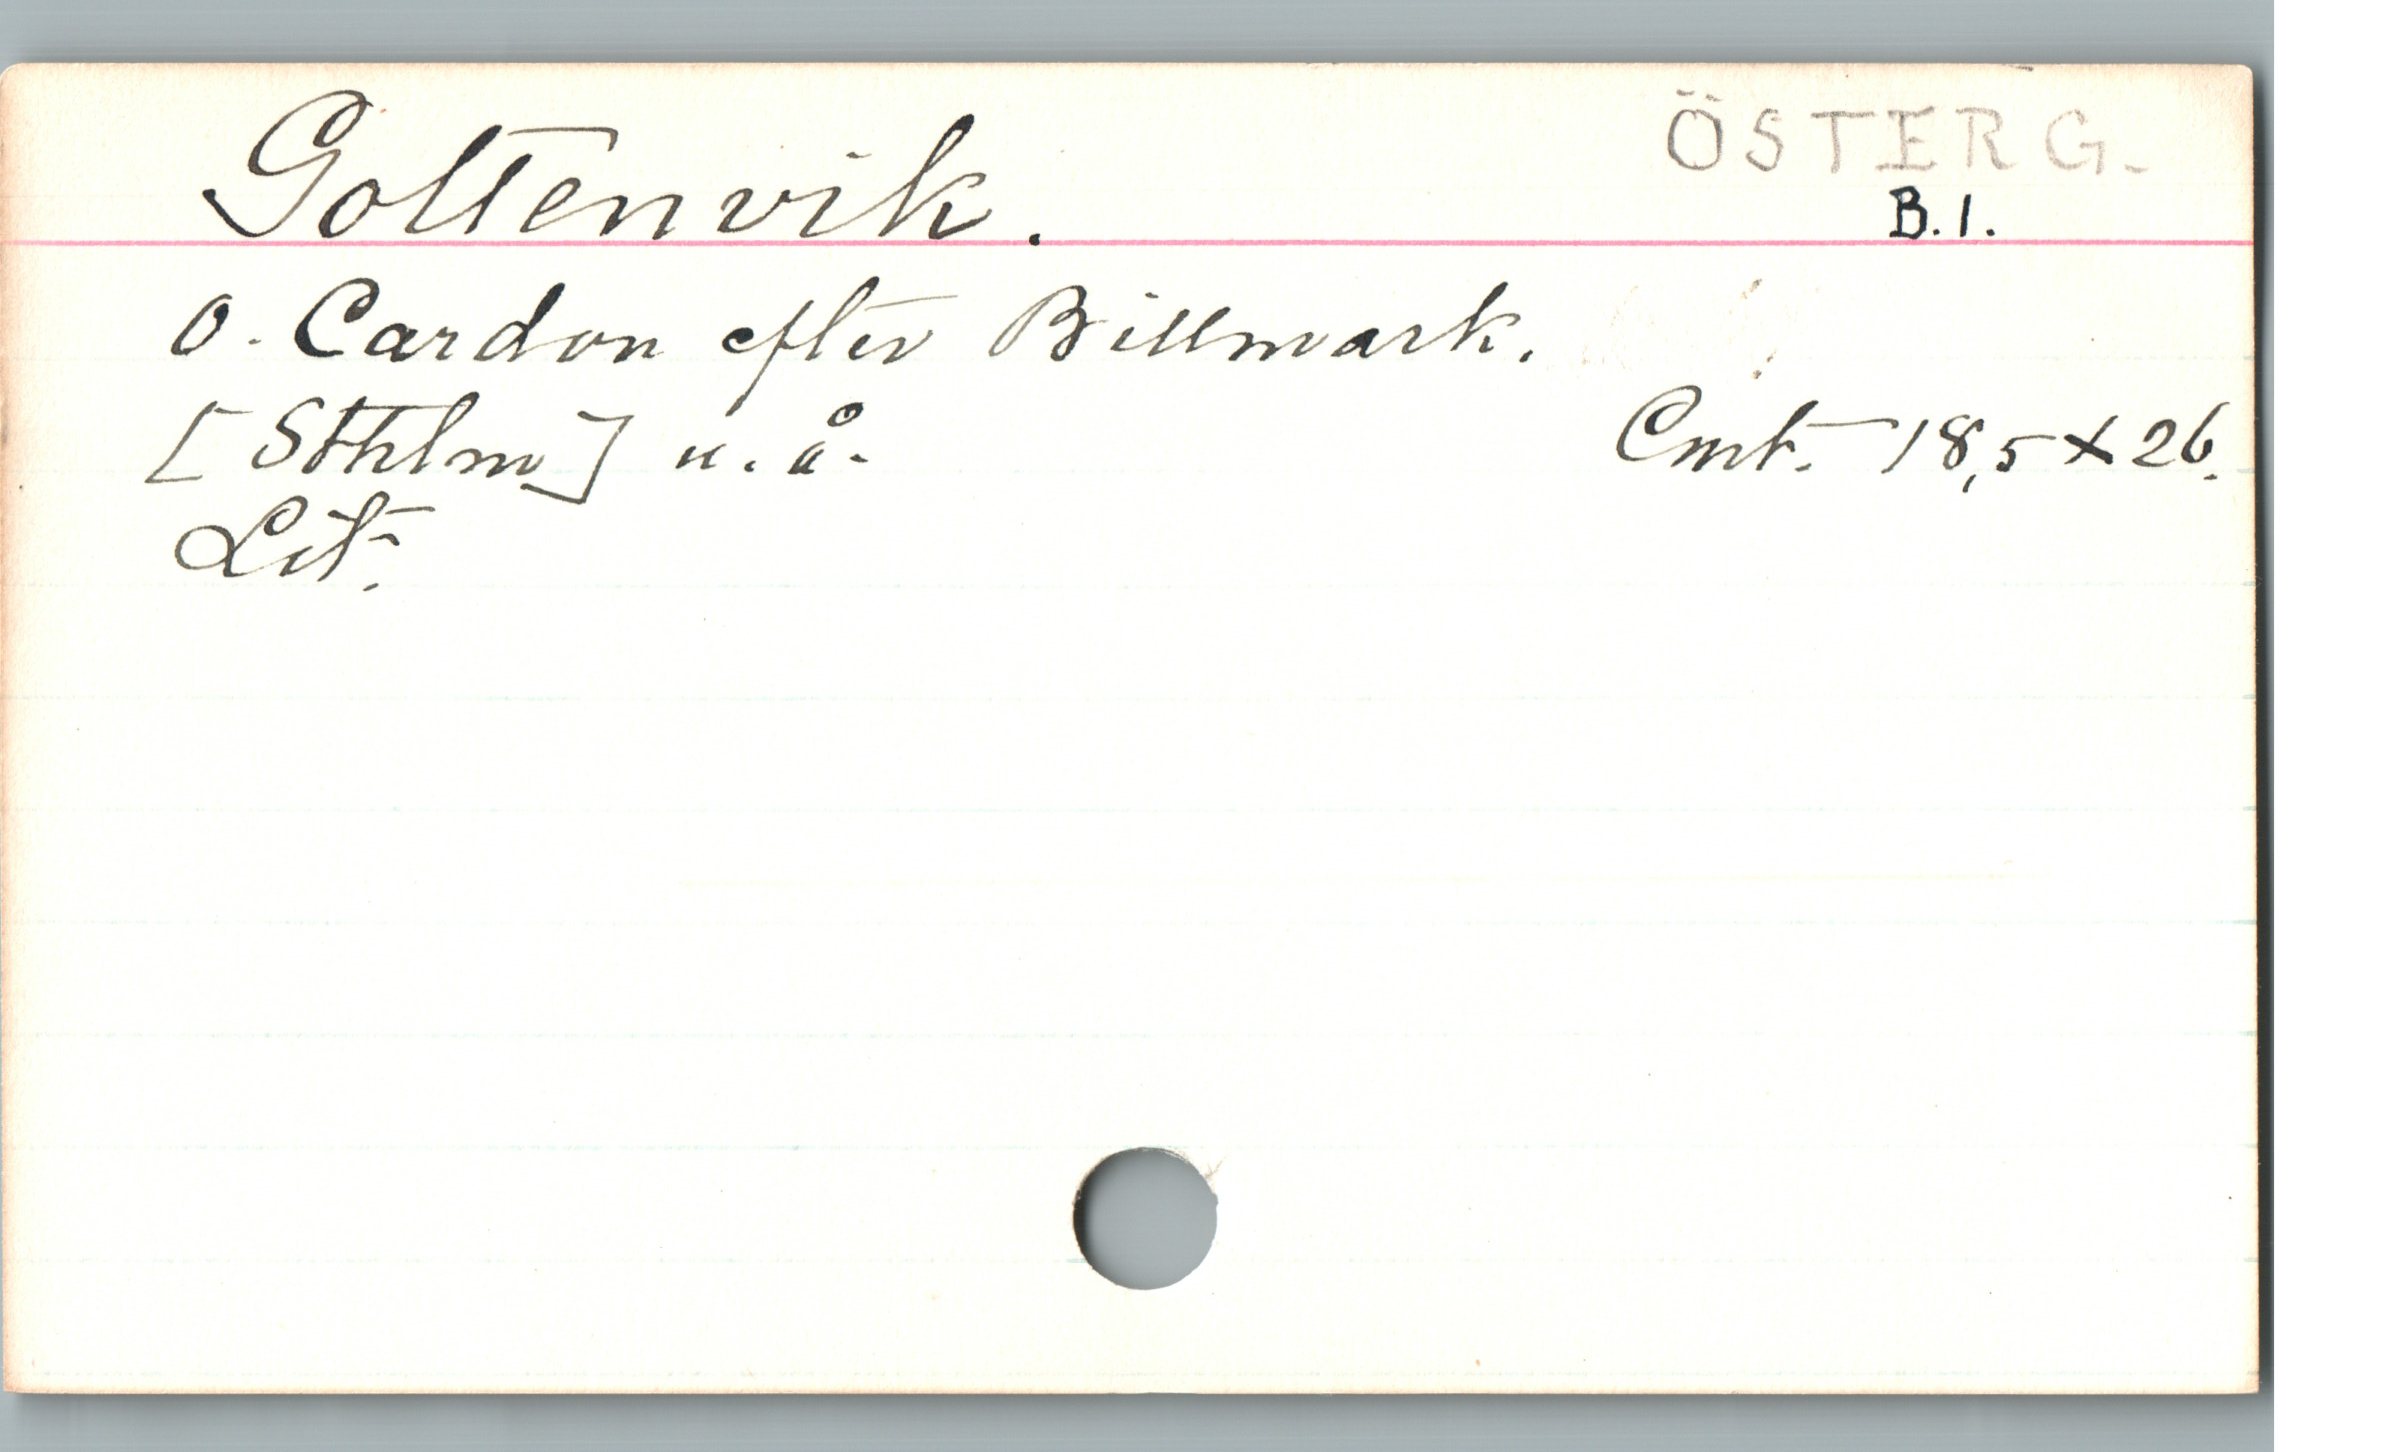 Goltenvik. ÖSTERG.
B.1.
O. Cardon efter Billmark.
[Sthlm] u.å. Cmt. 18,5 x 26.
Lit.